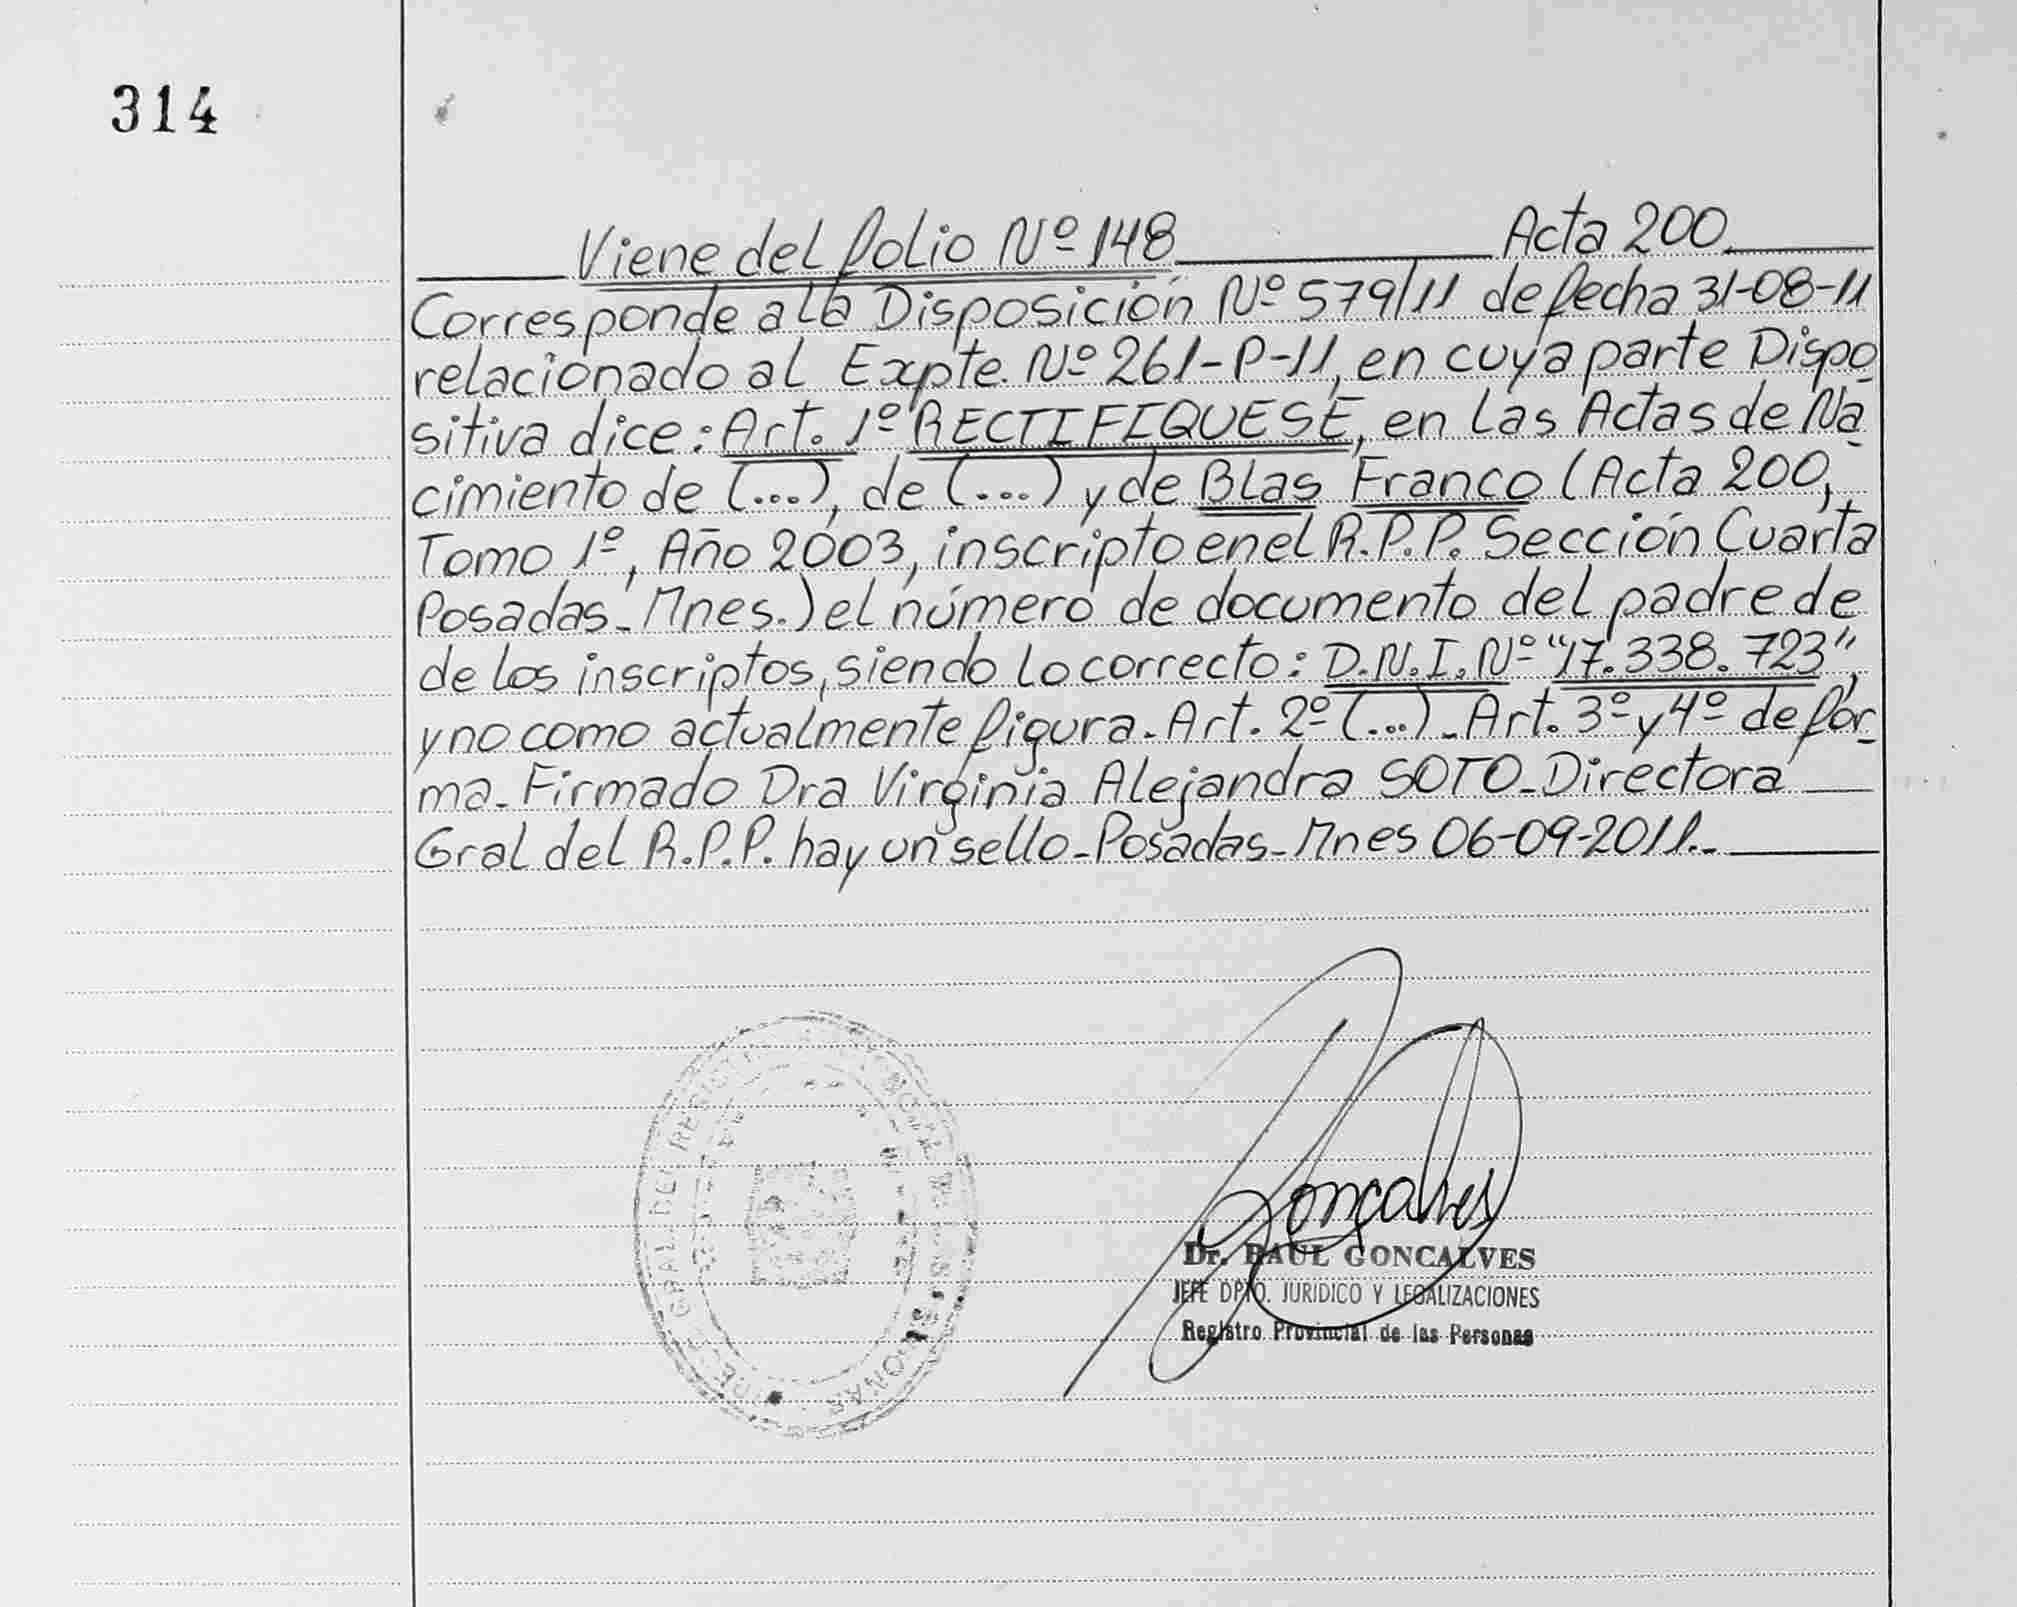 314
Viene del folio Nº 148 Acta 200
Corresponde a la Disposición Nº 579/11 de fecha 31-08-11
relacionado al Expte. Nº 261-P-11, en cuya parte Dispo
sitiva dice: Art. 1º RECTIFIQUESE, en las Actas de Na
cimiento de (...), de (...) y de Blas Franco (Acta 200,
Tomo 1º, Año 2003, inscripto en el R.P.P. Sección Cuarta
Posadas- Mnes.) el número de documento del padre de
de los inscriptos, siendo lo correcto: D.N.I. Nº "17.338.723",
y no como actualmente figura. Art. 2º (...). Art. 3º y 4º de for-
ma. Firmado Dra Virginia Alejandra SOTO- Directora
Gral del R.P.P. hay un sello- Posadas- Mnes 06-09-2011.-
GRAL DEL
Gonçalves
Dr. RAUL GONCALVES
JEFE DPTO. JURIDICO Y LEGALIZACIONES
Registro Provincial de las Personas